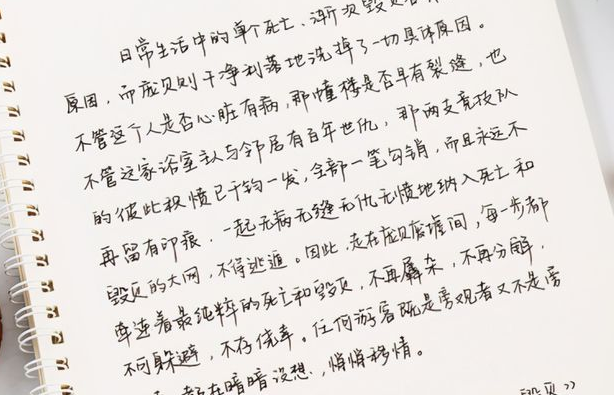 日常生活中的单个死亡、渐次毁灭
原因，而庞贝则干净利落地洗掉了一切具体原因。
不管这个人是否心脏有病，那幢楼是否早有裂缝，也
不管这家浴室主人与邻居有百年世仇，那两支竞技队
的彼此积愤已千钧一发，全部一笔勾销，而且永远不
再留有印痕，一起无病无缝无仇无愤地纳入死亡和
毁灭的大网，不得逃遁。因此，走在庞贝废墟间，每一步都
牵连着最纯粹的死亡和毁灭，不再羼杂，不再分解，
不可躲避，不存侥幸。任何游客既是旁观者又不是旁
都在暗暗设想，悄悄移情。
毁灭》